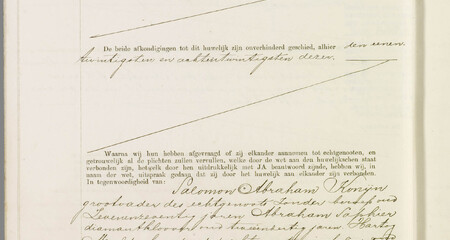 De beide afkondigingen tot dit huwelijk zijn onverhinderd geschied, alhier den eenen
twintigsten en achtentwintigsten dezer.
Waarna wij hun hebben afgevraagd of zij elkander aannemen tot echtgenooten, en
getrouwelijk al de plichten zullen vervullen, welke door de wet aan den huwelijkschen staat
verbonden zijn, hetwelk door hen uitdrukkelijk met JA beantwoord zijnde, hebben wij, in
naam der wet, uitspraak gedaan dat zij door het huwelijk aan elkander zijn verbonden.
In tegenwoordigheid van: Salomon Abraham Konijn
grootvader des echtgenoots zonder beroep oud
zevenenzeventig jaren Abraham Saphier
diamantklover oud jaren Hartog